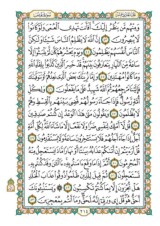 وَمِنْهُم مَّن يَنظُرُ إِلَيْكَ أَفَأَنتَ تَهْدِي الْعُمْيَ وَلَوْ كَانُوا
لَا يُبْصِرُونَ ٤٣ إِنَّ اللَّهَ لَا يَظْلِمُ النَّاسَ شَيْئًا وَلَٰكِنَّ
النَّاسَ أَنفُسَهُمْ يَظْلِمُونَ ٤٤ وَيَوْمَ يَحْشُرُهُمْ كَأَن لَّمْ يَلْبَثُوا إِلَّا
سَاعَةً مِّنَ النَّهَارِ يَتَعَارَفُونَ بَيْنَهُمْ قَدْ خَسِرَ الَّذِينَ كَذَّبُوا بِلِقَاءِ اللَّهِ
وَمَا كَانُوا مُهْتَدِينَ ٤٥ وَإِمَّا نُرِيَنَّكَ بَعْضَ الَّذِي نَعِدُهُمْ أَوْ نَتَوَفَّيَنَّكَ
فَإِلَيْنَا مَرْجِعُهُمْ ثُمَّ اللَّهُ شَهِيدٌ عَلَىٰ مَا يَفْعَلُونَ ٤٦ وَلِكُلِّ
أُمَّةٍ رَّسُولٌ فَإِذَا جَاءَ رَسُولُهُمْ قُضِيَ بَيْنَهُم بِالْقِسْطِ وَهُمْ
لَا يُظْلَمُونَ ٤٧ وَيَقُولُونَ مَتَىٰ هَٰذَا الْوَعْدُ إِن كُنتُمْ صَادِقِينَ
٤٨ قُل لَّا أَمْلِكُ لِنَفْسِي ضَرًّا وَلَا نَفْعًا إِلَّا مَا شَاءَ اللَّهُ لِكُلِّ أُمَّةٍ
أَجَلٌ إِذَا جَاءَ أَجَلُهُمْ فَلَا يَسْتَأْخِرُونَ سَاعَةً وَلَا يَسْتَقْدِمُونَ
٤٩ قُلْ أَرَأَيْتُمْ إِنْ أَتَاكُمْ عَذَابُهُ بَيَاتًا أَوْ نَهَارًا مَّاذَا يَسْتَعْجِلُ مِنْهُ
الْمُجْرِمُونَ ٥٠ أَثُمَّ إِذَا مَا وَقَعَ آمَنتُم بِهِ آلْآنَ وَقَدْ كُنتُم بِهِ
تَسْتَعْجِلُونَ ٥١ ثُمَّ قِيلَ لِلَّذِينَ ظَلَمُوا ذُوقُوا عَذَابَ الْخُلْدِ
هَلْ تُجْزَوْنَ إِلَّا بِمَا كُنتُمْ تَكْسِبُونَ ٥٢ وَيَسْتَنبِئُونَكَ
أَحَقٌّ هُوَ قُلْ إِي وَرَبِّي إِنَّهُ لَحَقٌّ وَمَا أَنتُم بِمُعْجِزِينَ ٥٣
٢١٤